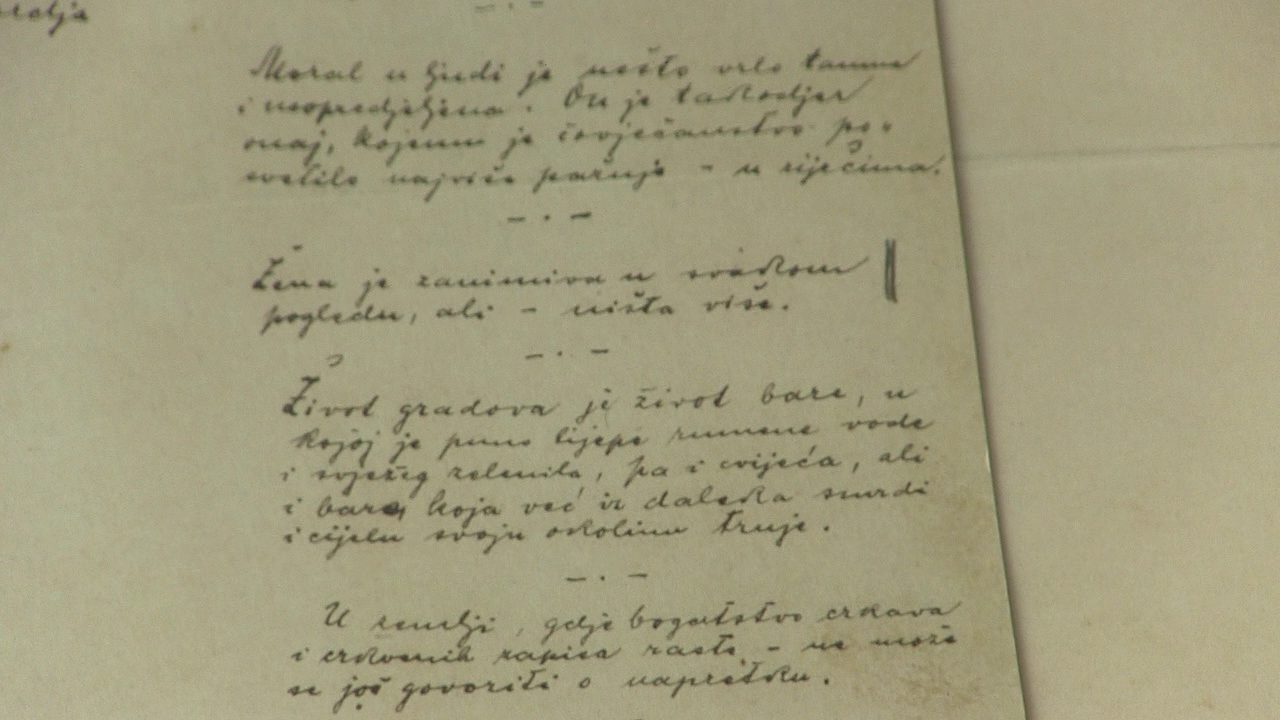 Moral u ljudi je nešto vrlo tamno
i neopredjeljeno. On je takodjer
onaj, kojemu je čovječanstvo po-
svetilo najviše pažnje - u riječima.
- . -
Žena je zanimiva u svakom
pogledu, ali - ništa više.
- . -
Život gradova je život bare, u
kojoj je puno lijepe rumene vode
i svježeg zelenila, pa i cvijeća, ali
i bare, koja već iz daleka smrdi
i cijelu svoju okolinu truje.
- . -
U zemlji, gdje bogatstvo crkava
i crkvenih raste - ne može
se još govoriti o napretku.